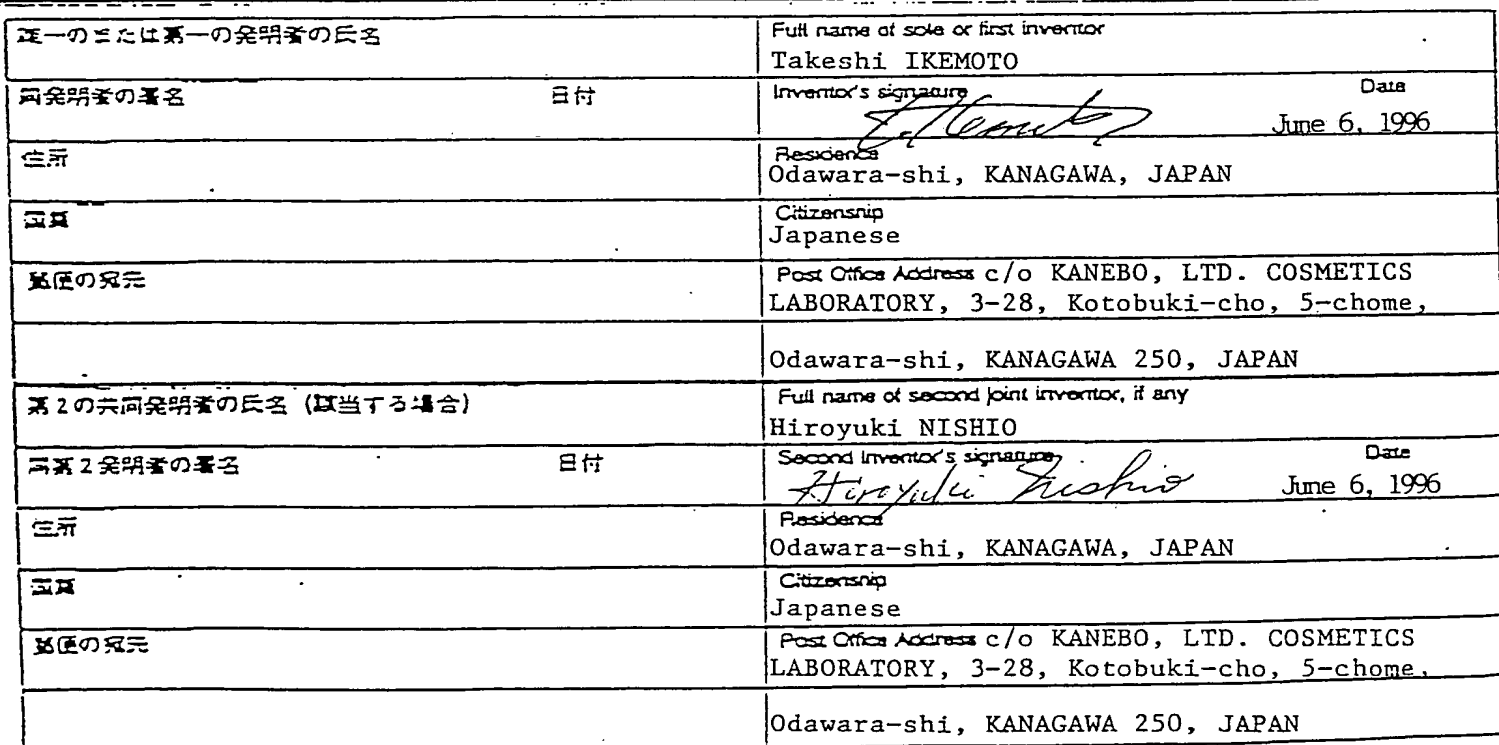 唯一のまたは第一の発明者の氏名
Full name of sole or first inventor
Takeshi IKEMOTO
同発明者の署名 日付
Inventor's signature Date
June 6, 1996
住所
Residence
Odawara-shi, KANAGAWA, JAPAN
国籍
Citizenship
Japanese
郵便の宛先
Post Office Address c/o KANEBO, LTD. COSMETICS
LABORATORY, 3-28, Kotobuki-cho, 5-chome,
Odawara-shi, KANAGAWA 250, JAPAN
第2の共同発明者の氏名 (該当する場合)
Full name of second joint inventor, if any
Hiroyuki NISHIO
同第2発明者の署名 日付
Second Inventor's signature Date
Hiroyuki Nishio June 6, 1996
住所
Residence
Odawara-shi, KANAGAWA, JAPAN
国籍
Citizenship
Japanese
郵便の宛先
Post Office Address c/o KANEBO, LTD. COSMETICS
LABORATORY, 3-28, Kotobuki-cho, 5-chome,
Odawara-shi, KANAGAWA 250, JAPAN